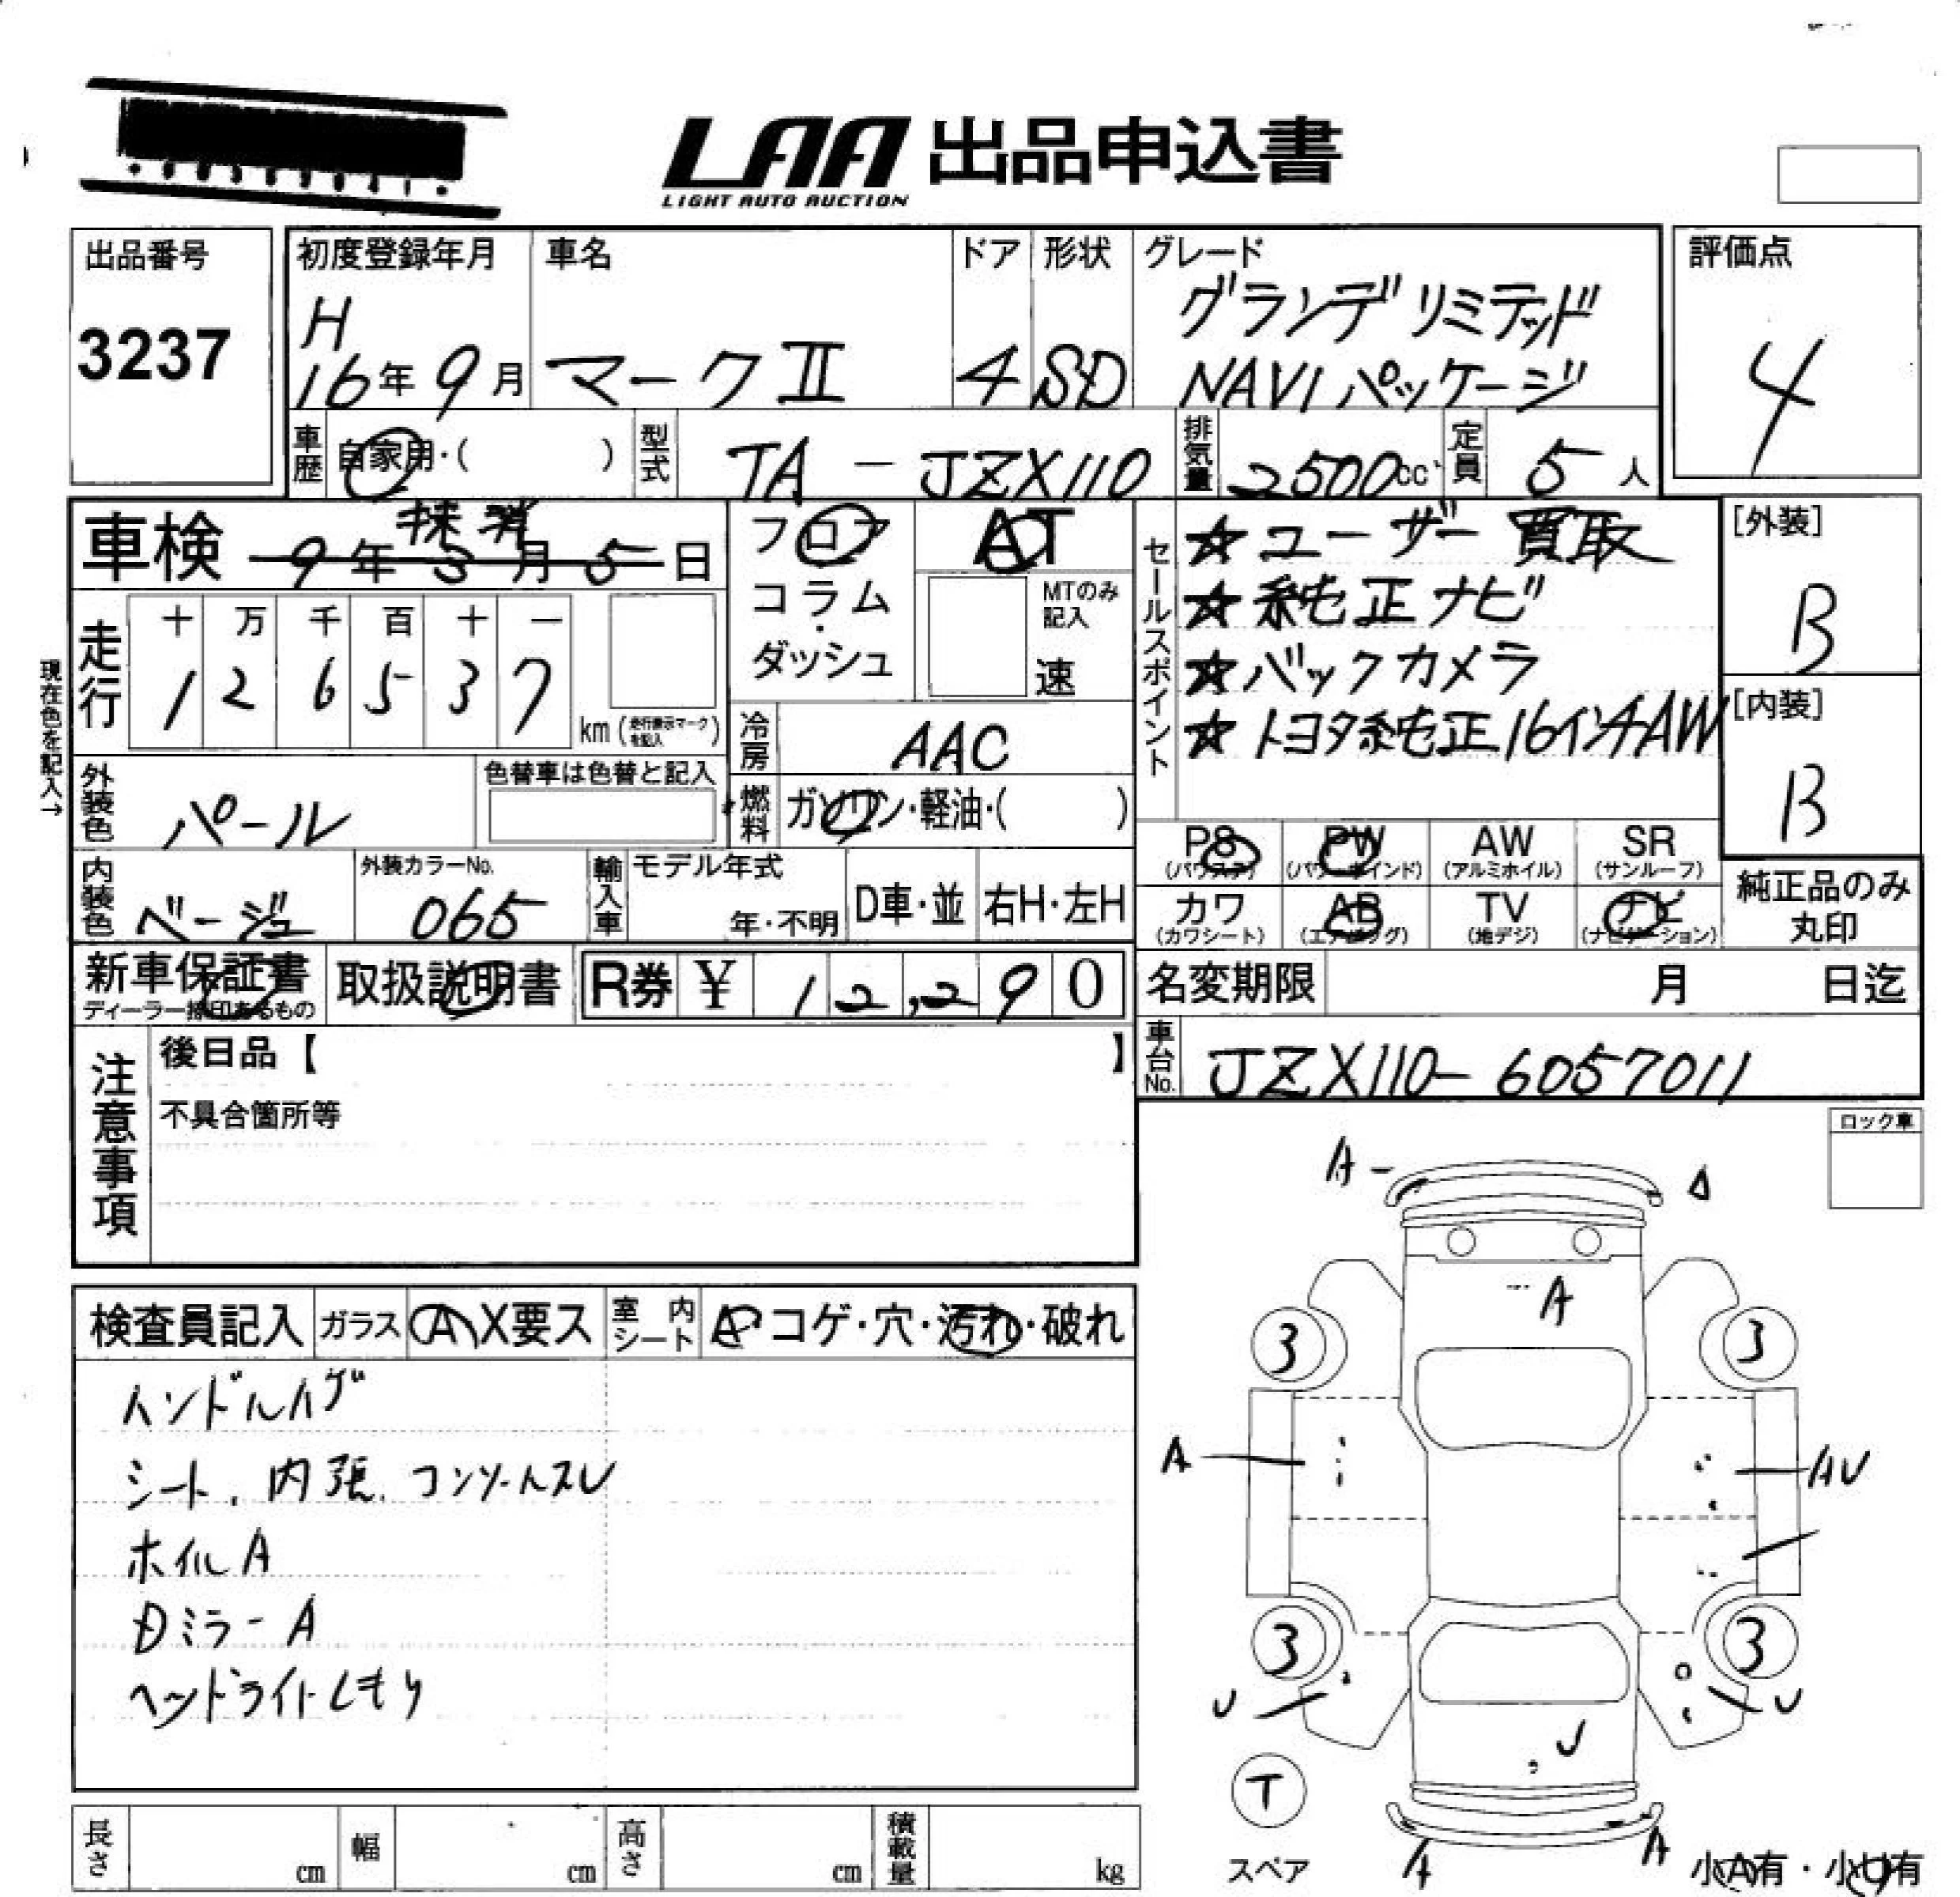 LAA 出品申込書
LIGHT AUTO AUCTION
出品番号
3237
初度登録年月
H
16年 9月
車名
マークⅡ
ドア
4
形状
SD
グレード
グランデ リミテッド
NAVI パッケージ
評価点
4
車歴
自家用・( )
型式
TA - JZX110
排気量
2500cc
定員
5人
車検
抹消
9年3月5日
フロア
コラム
・
ダッシュ
AT
MTのみ
記入
速
セールスポイント
☆ユーザー買取
☆純正ナビ
☆バックカメラ
☆トヨタ純正16インチAW
[外装]
B
[内装]
B
現在色を記入→
走行
十 万 千 百 十 一
1 2 6 5 3 7
km (走行表示マークを記入)
冷房
AAC
外装色
パール
色替車は色替と記入
燃料
ガソリン・軽油・( )
PS
(パワステ)
PW
(パワーウインド)
AW
(アルミホイル)
SR
(サンルーフ)
カワ
(カワシート)
AB
(エアバッグ)
TV
(地デジ)
ナビ
(ナビゲーション)
純正品のみ
丸印
内装色
ベージュ
外装カラーNo.
065
輸入車
モデル年式
年・不明
D車・並
右H・左H
新車保証書
ディーラー捺印あるもの
取扱説明書
R券 ¥ 12,290
名変期限 月 日迄
車台No.
JZX110-6057011
注意事項
後日品【 】
不具合箇所等
ロック車
A
A
3
3
A
AU
3
3
U
U
U
T
スペア
A
A
小A有・小U有
検査員記入
ガラス
A X要ス
室内
シート
A コゲ・穴・汚れ・破れ
ハンドルハゲ
シート、内張、コンソールスレ
ホイルA
Dミラー A
ヘッドライトくもり
長さ cm
幅 cm
高さ cm
積載量 kg